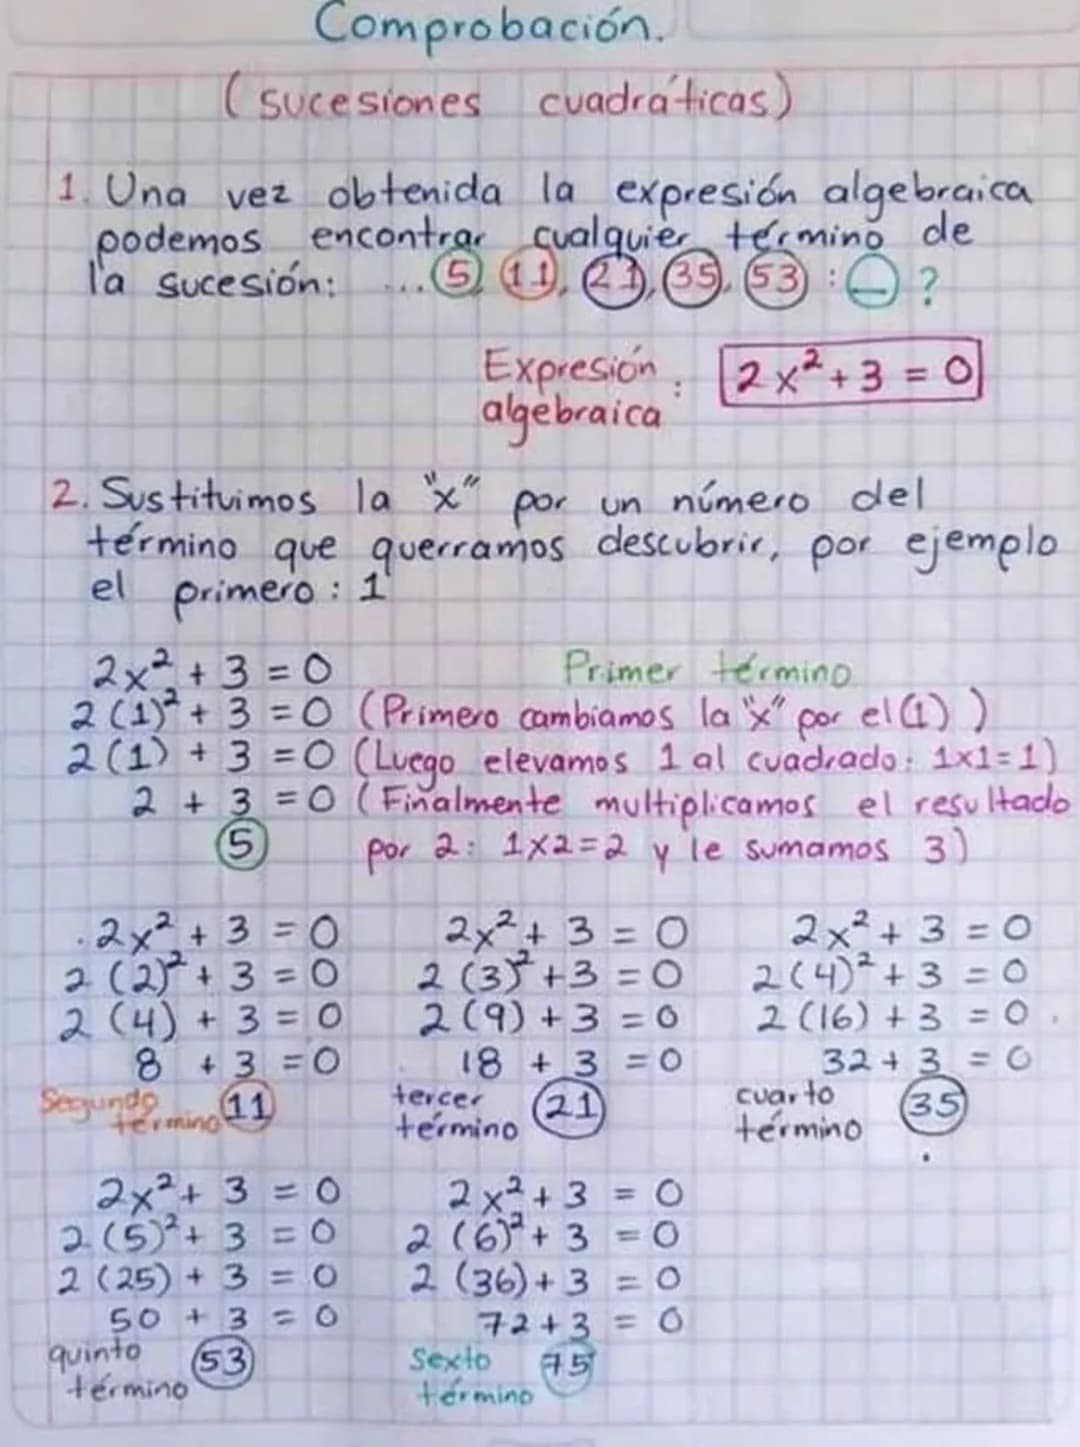 Comprobación.
(sucesiones cuadráticas)
1. Una vez obtenida la expresión algebraica
podemos encontrar cualquier término de
la sucesión: ... 5, 11, 21, 35, 53 : _ ?
Expresión algebraica : 2x² + 3 = 0
2. Sustituimos la "x" por un número del
término que querramos descubrir, por ejemplo
el primero : 1
Primer término
2x² + 3 = 0
2(1)² + 3 = 0 (Primero cambiamos la "x" por el (1))
2(1) + 3 = 0 (Luego elevamos 1 al cuadrado: 1x1=1)
2 + 3 = 0 (Finalmente multiplicamos el resultado
5 por 2: 1x2=2 y le sumamos 3)
2x² + 3 = 0
2(2)² + 3 = 0
2(4) + 3 = 0
8 + 3 = 0
Segundo término 11
2x² + 3 = 0
2(3)² + 3 = 0
2(9) + 3 = 0
18 + 3 = 0
tercer término 21
2x² + 3 = 0
2(4)² + 3 = 0
2(16) + 3 = 0
32 + 3 = 0
cuarto término 35
2x² + 3 = 0
2(5)² + 3 = 0
2(25) + 3 = 0
50 + 3 = 0
quinto término 53
2x² + 3 = 0
2(6)² + 3 = 0
2(36) + 3 = 0
72 + 3 = 0
Sexto término 75